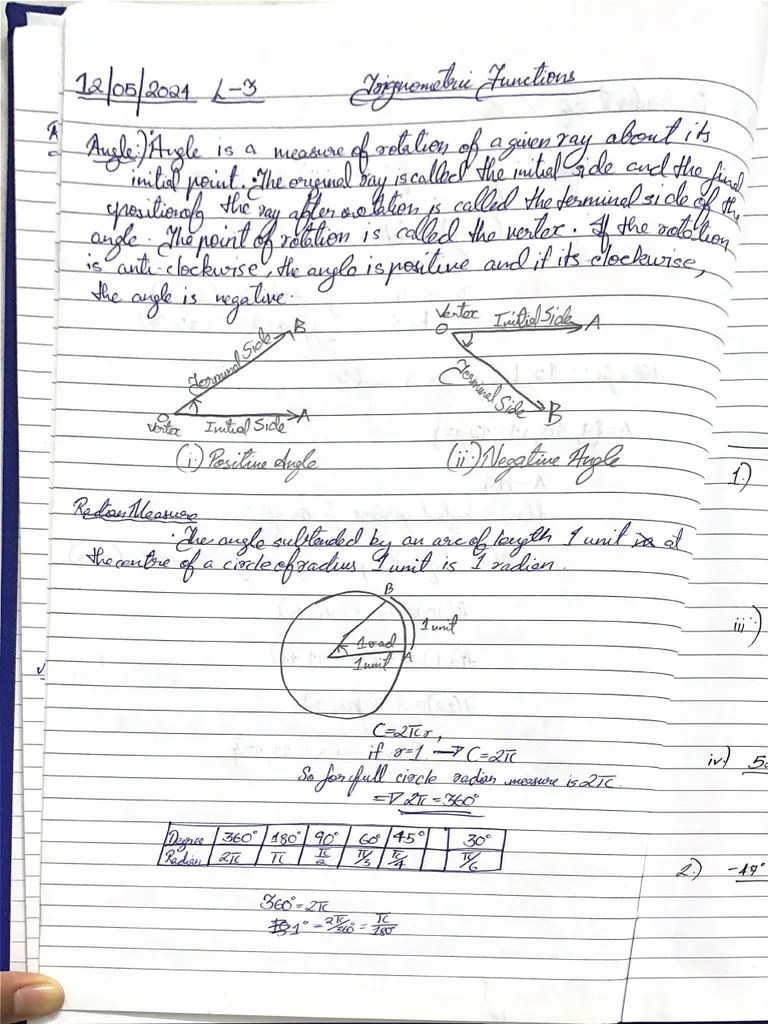 12/05/2021 L-3 Trignometric Functions
Angle:) Angle is a measure of rotation of a given ray about its
initial point. The original ray is called the initial side and the final
position of the ray after rotation is called the terminal side of the
angle. The point of rotation is called the vertex. If the rotation
is anti-clockwise, the angle is positive and if its clockwise,
the angle is negative.
B
Terminal Side
O A
Vertex Initial Side
(i) Positive Angle
Vertex Initial Side A
O
Terminal Side
B
(ii) Negative Angle
1)
Radian Measure
The angle subtended by an arc of length 1 unit at
the centre of a circle of radius 1 unit is 1 radian.
B
1 unit
1 rad
1 unit A
iii)
C=2πr,
if r=1 → C=2π
iv) 5
So for full circle radian measure is 2π.
⇒ 2π=360°
Degree 360° 180° 90° 60° 45° 30°
Radian 2π π π/2 π/3 π/4 π/6
2)
360°=2π
1°=2π/360=π/180